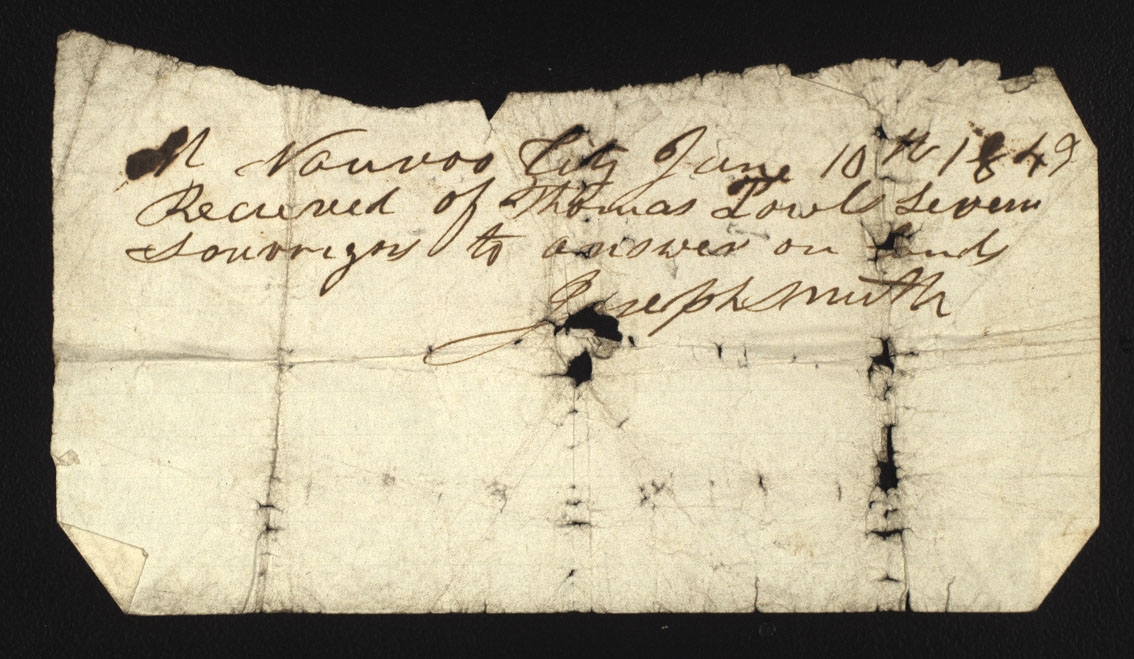 At Nauvoo City June 10th 184
Recieved of Thomas Towls Severn
Souvrigns to answer on Lands
Joseph Smith